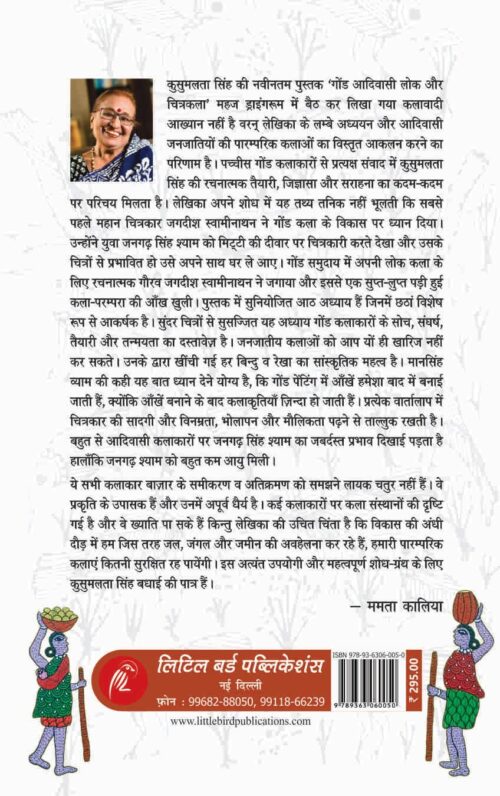 कुसुमलता सिंह की नवीनतम पुस्तक 'गोंड आदिवासी लोक और
चित्रकला' महज ड्राइंगरूम में बैठ कर लिखा गया कलावादी
आख्यान नहीं है वरन् लेखिका के लम्बे अध्ययन और आदिवासी
जनजातियों की पारम्परिक कलाओं का विस्तृत आकलन करने का
परिणाम है। पच्चीस गोंड कलाकारों से प्रत्यक्ष संवाद में कुसुमलता
सिंह की रचनात्मक तैयारी, जिज्ञासा और सराहना का कदम-कदम
पर परिचय मिलता है। लेखिका अपने शोध में यह तथ्य तनिक नहीं भूलती कि सबसे
पहले महान चित्रकार जगदीश स्वामीनाथन ने गोंड कला के विकास पर ध्यान दिया।
उन्होंने युवा जनगढ़ सिंह श्याम को मिट्टी की दीवार पर चित्रकारी करते देखा और उसके
चित्रों से प्रभावित हो उसे अपने साथ घर ले आए। गोंड समुदाय में अपनी लोक कला के
लिए रचनात्मक गौरव जगदीश स्वामीनाथन ने जगाया और इससे एक सुप्त-लुप्त पड़ी हुई
कला-परम्परा की आँख खुली। पुस्तक में सुनियोजित आठ अध्याय हैं जिनमें छठां विशेष
रूप से आकर्षक है। सुंदर चित्रों से सुसज्जित यह अध्याय गोंड कलाकारों के सोच, संघर्ष,
तैयारी और तन्मयता का दस्तावेज़ है। जनजातीय कलाओं को आप यों ही खारिज नहीं
कर सकते। उनके द्वारा खींची गई हर बिन्दु व रेखा का सांस्कृतिक महत्व है। मानसिंह
व्याम की कही यह बात ध्यान देने योग्य है, कि गोंड पेंटिंग में आँखें हमेशा बाद में बनाई
जाती हैं, क्योंकि आँखें बनाने के बाद कलाकृतियाँ ज़िन्दा हो जाती हैं। प्रत्येक वार्तालाप में
चित्रकार की सादगी और विनम्रता, भोलापन और मौलिकता पढ़ने से ताल्लुक रखती है।
बहुत से आदिवासी कलाकारों पर जनगढ़ सिंह श्याम का जबर्दस्त प्रभाव दिखाई पड़ता है
हालाँकि जनगढ़ श्याम को बहुत कम आयु मिली।
ये सभी कलाकार बाज़ार के समीकरण व अतिक्रमण को समझने लायक चतुर नहीं हैं। वे
प्रकृति के उपासक हैं और उनमें अपूर्व धैर्य है। कई कलाकारों पर कला संस्थानों की दृष्टि
गई है और वे ख्याति पा सके हैं किन्तु लेखिका की उचित चिंता है कि विकास की अंधी
दौड़ में हम जिस तरह जल, जंगल और जमीन की अवहेलना कर रहे हैं, हमारी पारम्परिक
कलाएं कितनी सुरक्षित रह पायेंगी। इस अत्यंत उपयोगी और महत्वपूर्ण शोध-ग्रंथ के लिए
कुसुमलता सिंह बधाई की पात्र हैं।
— ममता कालिया
लिटिल बर्ड पब्लिकेशंस
नई दिल्ली
फ़ोन : 99682-88050, 99118-66239
www.littlebirdpublications.com
ISBN 978-93-6306-005-0
9 789363 060050
₹ 295.00